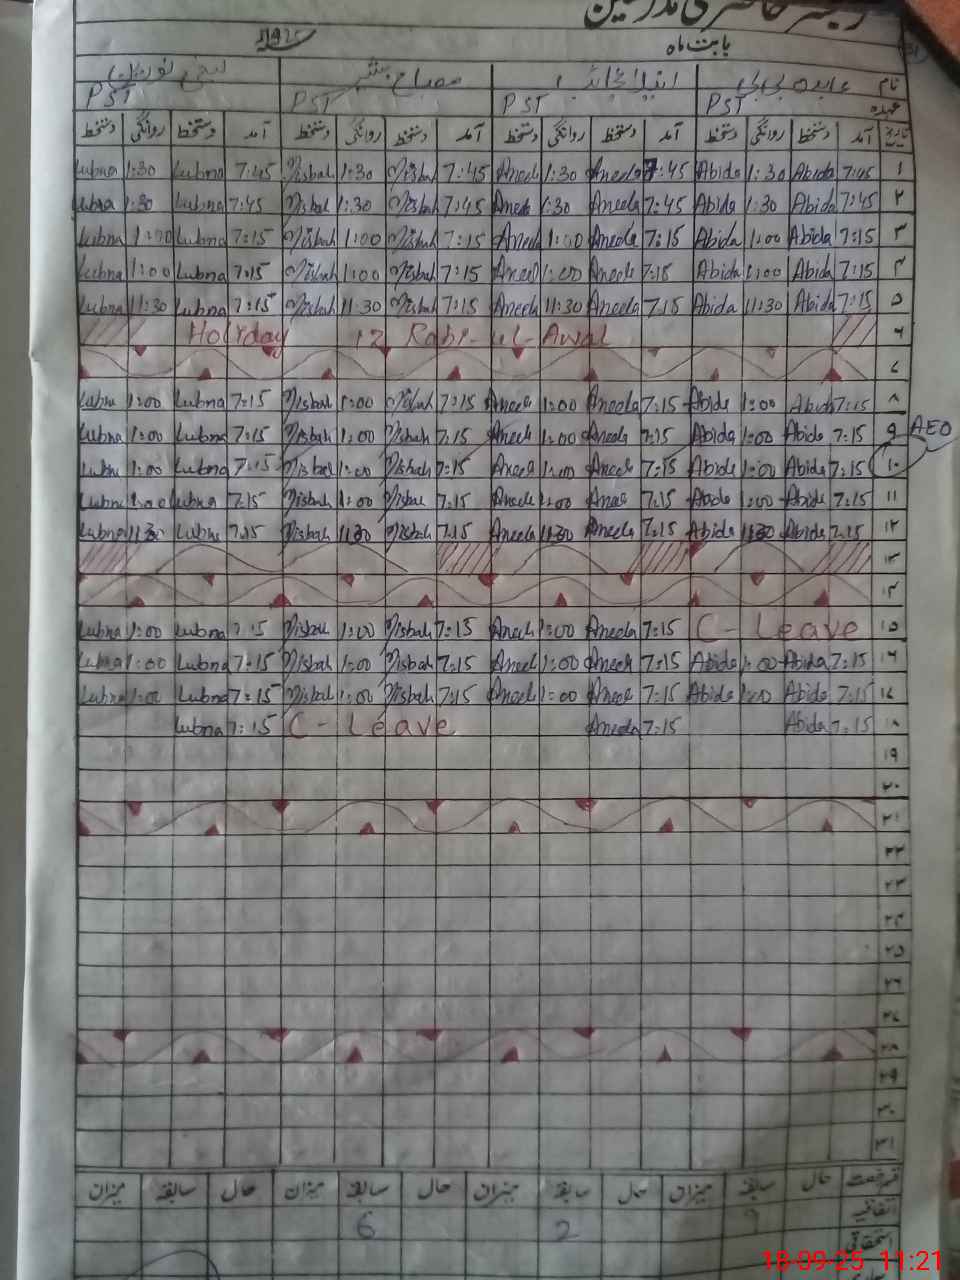 رجسٹر حاضری مدرسین
بابت ماہ
نام عابدہ بی بی انیلا مصباح
عہدہ PST PST PST PST
تاریخ آمد دستخط روانگی دستخط آمد دستخط روانگی دستخط آمد دستخط روانگی دستخط آمد دستخط روانگی دستخط
Lubna 1:30 Lubna 7:45 Misbah 1:30 Misbah 7:45 Aneela 1:30 Aneela 7:45 Abida 1:30 Abida 7:45 ۱
Lubna 1:30 Lubna 7:45 Misbah 1:30 Misbah 7:45 Aneela 1:30 Aneela 7:45 Abida 1:30 Abida 7:45 ۲
Lubna 1:00 Lubna 7:15 Misbah 1:00 Misbah 7:15 Aneela 1:00 Aneela 7:15 Abida 1:00 Abida 7:15 ۳
Lubna 1:00 Lubna 7:15 Misbah 1:00 Misbah 7:15 Aneela 1:00 Aneela 7:15 Abida 1:00 Abida 7:15 ۴
Lubna 11:30 Lubna 7:15 Misbah 11:30 Misbah 7:15 Aneela 11:30 Aneela 7:15 Abida 11:30 Abida 7:15 ۵
Holiday 12 Rabi-ul-Awal ۶
۷
Lubna 1:00 Lubna 7:15 Misbah 1:00 Misbah 7:15 Aneela 1:00 Aneela 7:15 Abida 1:00 Abida 7:15 ۸
Lubna 1:00 Lubna 7:15 Misbah 1:00 Misbah 7:15 Aneela 1:00 Aneela 7:15 Abida 1:00 Abida 7:15 ۹ AEO
Lubna 1:00 Lubna 7:15 Misbah 1:00 Misbah 7:15 Aneela 1:00 Aneela 7:15 Abida 1:00 Abida 7:15 ۱۰
Lubna 1:00 Lubna 7:15 Misbah 1:00 Misbah 7:15 Aneela 1:00 Aneela 7:15 Abida 1:00 Abida 7:15 ۱۱
Lubna 11:30 Lubna 7:15 Misbah 11:30 Misbah 7:15 Aneela 11:30 Aneela 7:15 Abida 11:30 Abida 7:15 ۱۲
۱۳
۱۴
Lubna 1:00 Lubna 7:15 Misbah 1:00 Misbah 7:15 Aneela 1:00 Aneela 7:15 C - Leave ۱۵
Lubna 1:00 Lubna 7:15 Misbah 1:00 Misbah 7:15 Aneela 1:00 Aneela 7:15 Abida 1:00 Abida 7:15 ۱۶
Lubna 1:00 Lubna 7:15 Misbah 1:00 Misbah 7:15 Aneela 1:00 Aneela 7:15 Abida 1:00 Abida 7:15 ۱۷
Lubna 7:15 C - Leave Aneela 7:15 Abida 7:15 ۱۸
۱۹
۲۰
۲۱
۲۲
۲۳
۲۴
۲۵
۲۶
۲۷
۲۸
۲۹
۳۰
۳۱
رخصت حال سابقہ میزان حال سابقہ میزان حال سابقہ میزان حال سابقہ میزان
اتفاقیہ 2 6
استحقاقی
18-09-25 11:21